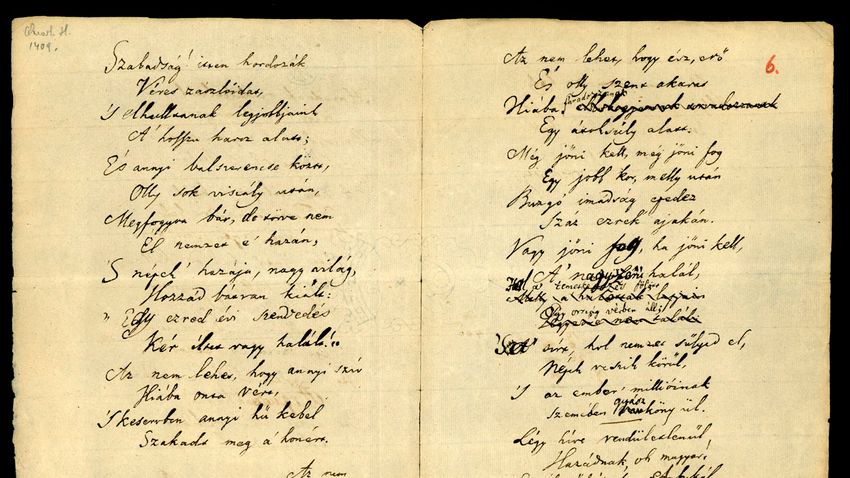 Quart. H.
1409.
Szabadság! itten hordozák
Véres zászlóidat,
'S elhulltanak legjobbjaink
A' hosszu harcz alatt;
És annyi balszerencse közt,
Olly sok viszály után,
Megfogyva bár, de törve nem
Él nemzet e' hazán,
'S népek' hazája, nagy világ,
Hozzád bátran kiált:
"Egy ezred évi szenvedés
Kér éltet vagy halált!"
Az nem lehet, hogy annyi szív
Hiába onta vért,
'S keservben annyi hű kebel
Szakadt meg a' honért.
Az nem
6.
Az nem lehet, hogy ész, erő
És olly szent akarat
Hiába
Egy átoksúly alatt.
Még jőni kell, még jőni fog
Egy jobb kor, melly után
Buzgó imádság epedez
Száz ezrek' ajakán.
Vagy jőni fog, ha jőni kell,
A' nagyszerű halál,
Hol a' temetkezés fölött
Egy ország vérben áll;
'S a' sírt, hol nemzet sűlyed el,
Népek veszik körűl,
'S az ember' millióinak
Szemében gyász köny űl.
Légy híve rendületlenűl,
Hazádnak, oh magyar: